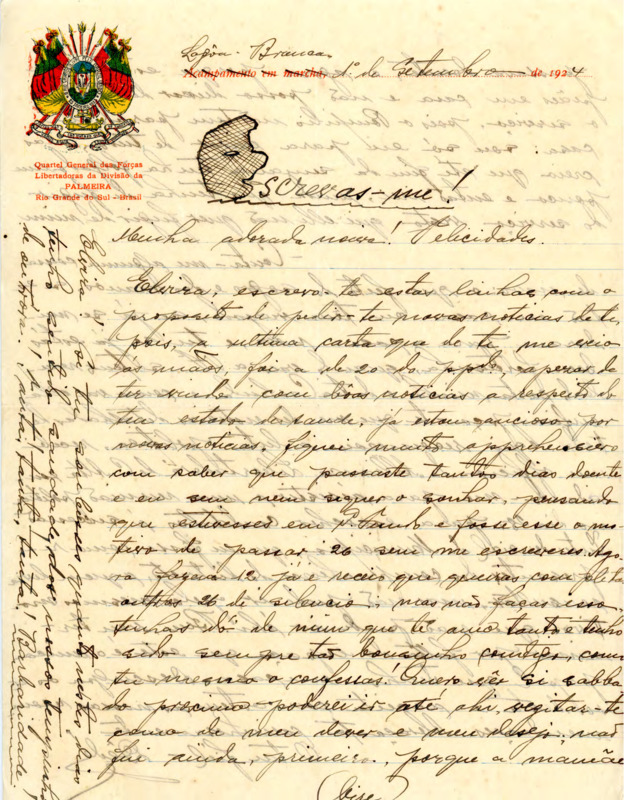 Lagôa Branca
Acampamento em marcha, 1º de Setembro de 1924
Quartel General das Forças
Libertadoras da Divisão da
PALMEIRA
Rio Grande do Sul - Brasil
Escrevas-me!
Minha adorada noiva! Felicidades.
Elvira, escrevo-te estas linhas com o
proposito de pedir-te novas noticias de ti,
pois, a ultima carta que de ti me veio
ás mãos, foi a de 20 do ppdo, apezar de
ter vindo com bôas noticias a respeito do
teu estado de saude, já estou ancioso por
novas noticias. Fiquei muito apprehensivo
com saber que passaste tantos dias doente
e eu sem nem siquer o sonhar, pensando
que estivesses em P. Fundo e fosse esse o mo-
tivo de passar 26 sem me escreveres. Ago-
ra fazem 12 já e receio que queiras completar
outros 26 de silencio, mas não faças isso,
tenhas dó de mim que te amo tanto e tenho
sido sempre tão bonsinho comtigo, como
tu mesmo o confessas! Quero vêr si sabba-
do proximo poderei ir até ahi, vezitar-te
como de meu dever e meu desejo, não
fui ainda, primeiro, porque a mamãe
Elvira! Se tu soubesses quanto nestes dias
tenho sentido saudade dos nossos tempos
de outrora. tanta, tanta, tanta! Barbaridade!